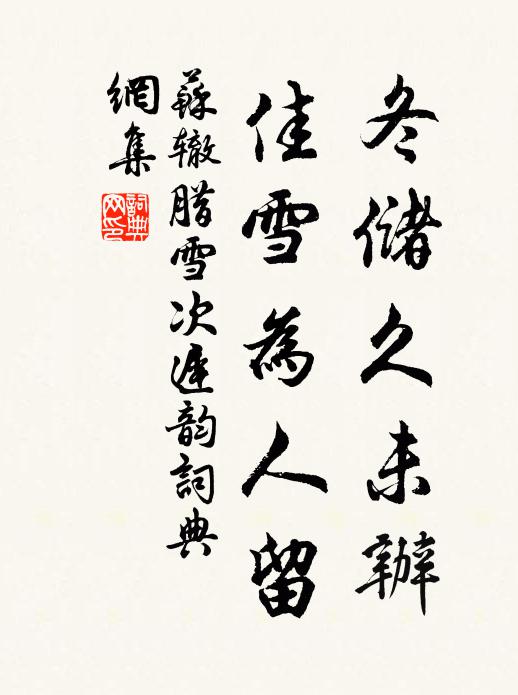 冬儲久未辦
佳雪為人留
蘇辙腊雪次遲韵詞典
網集
詞典
网印